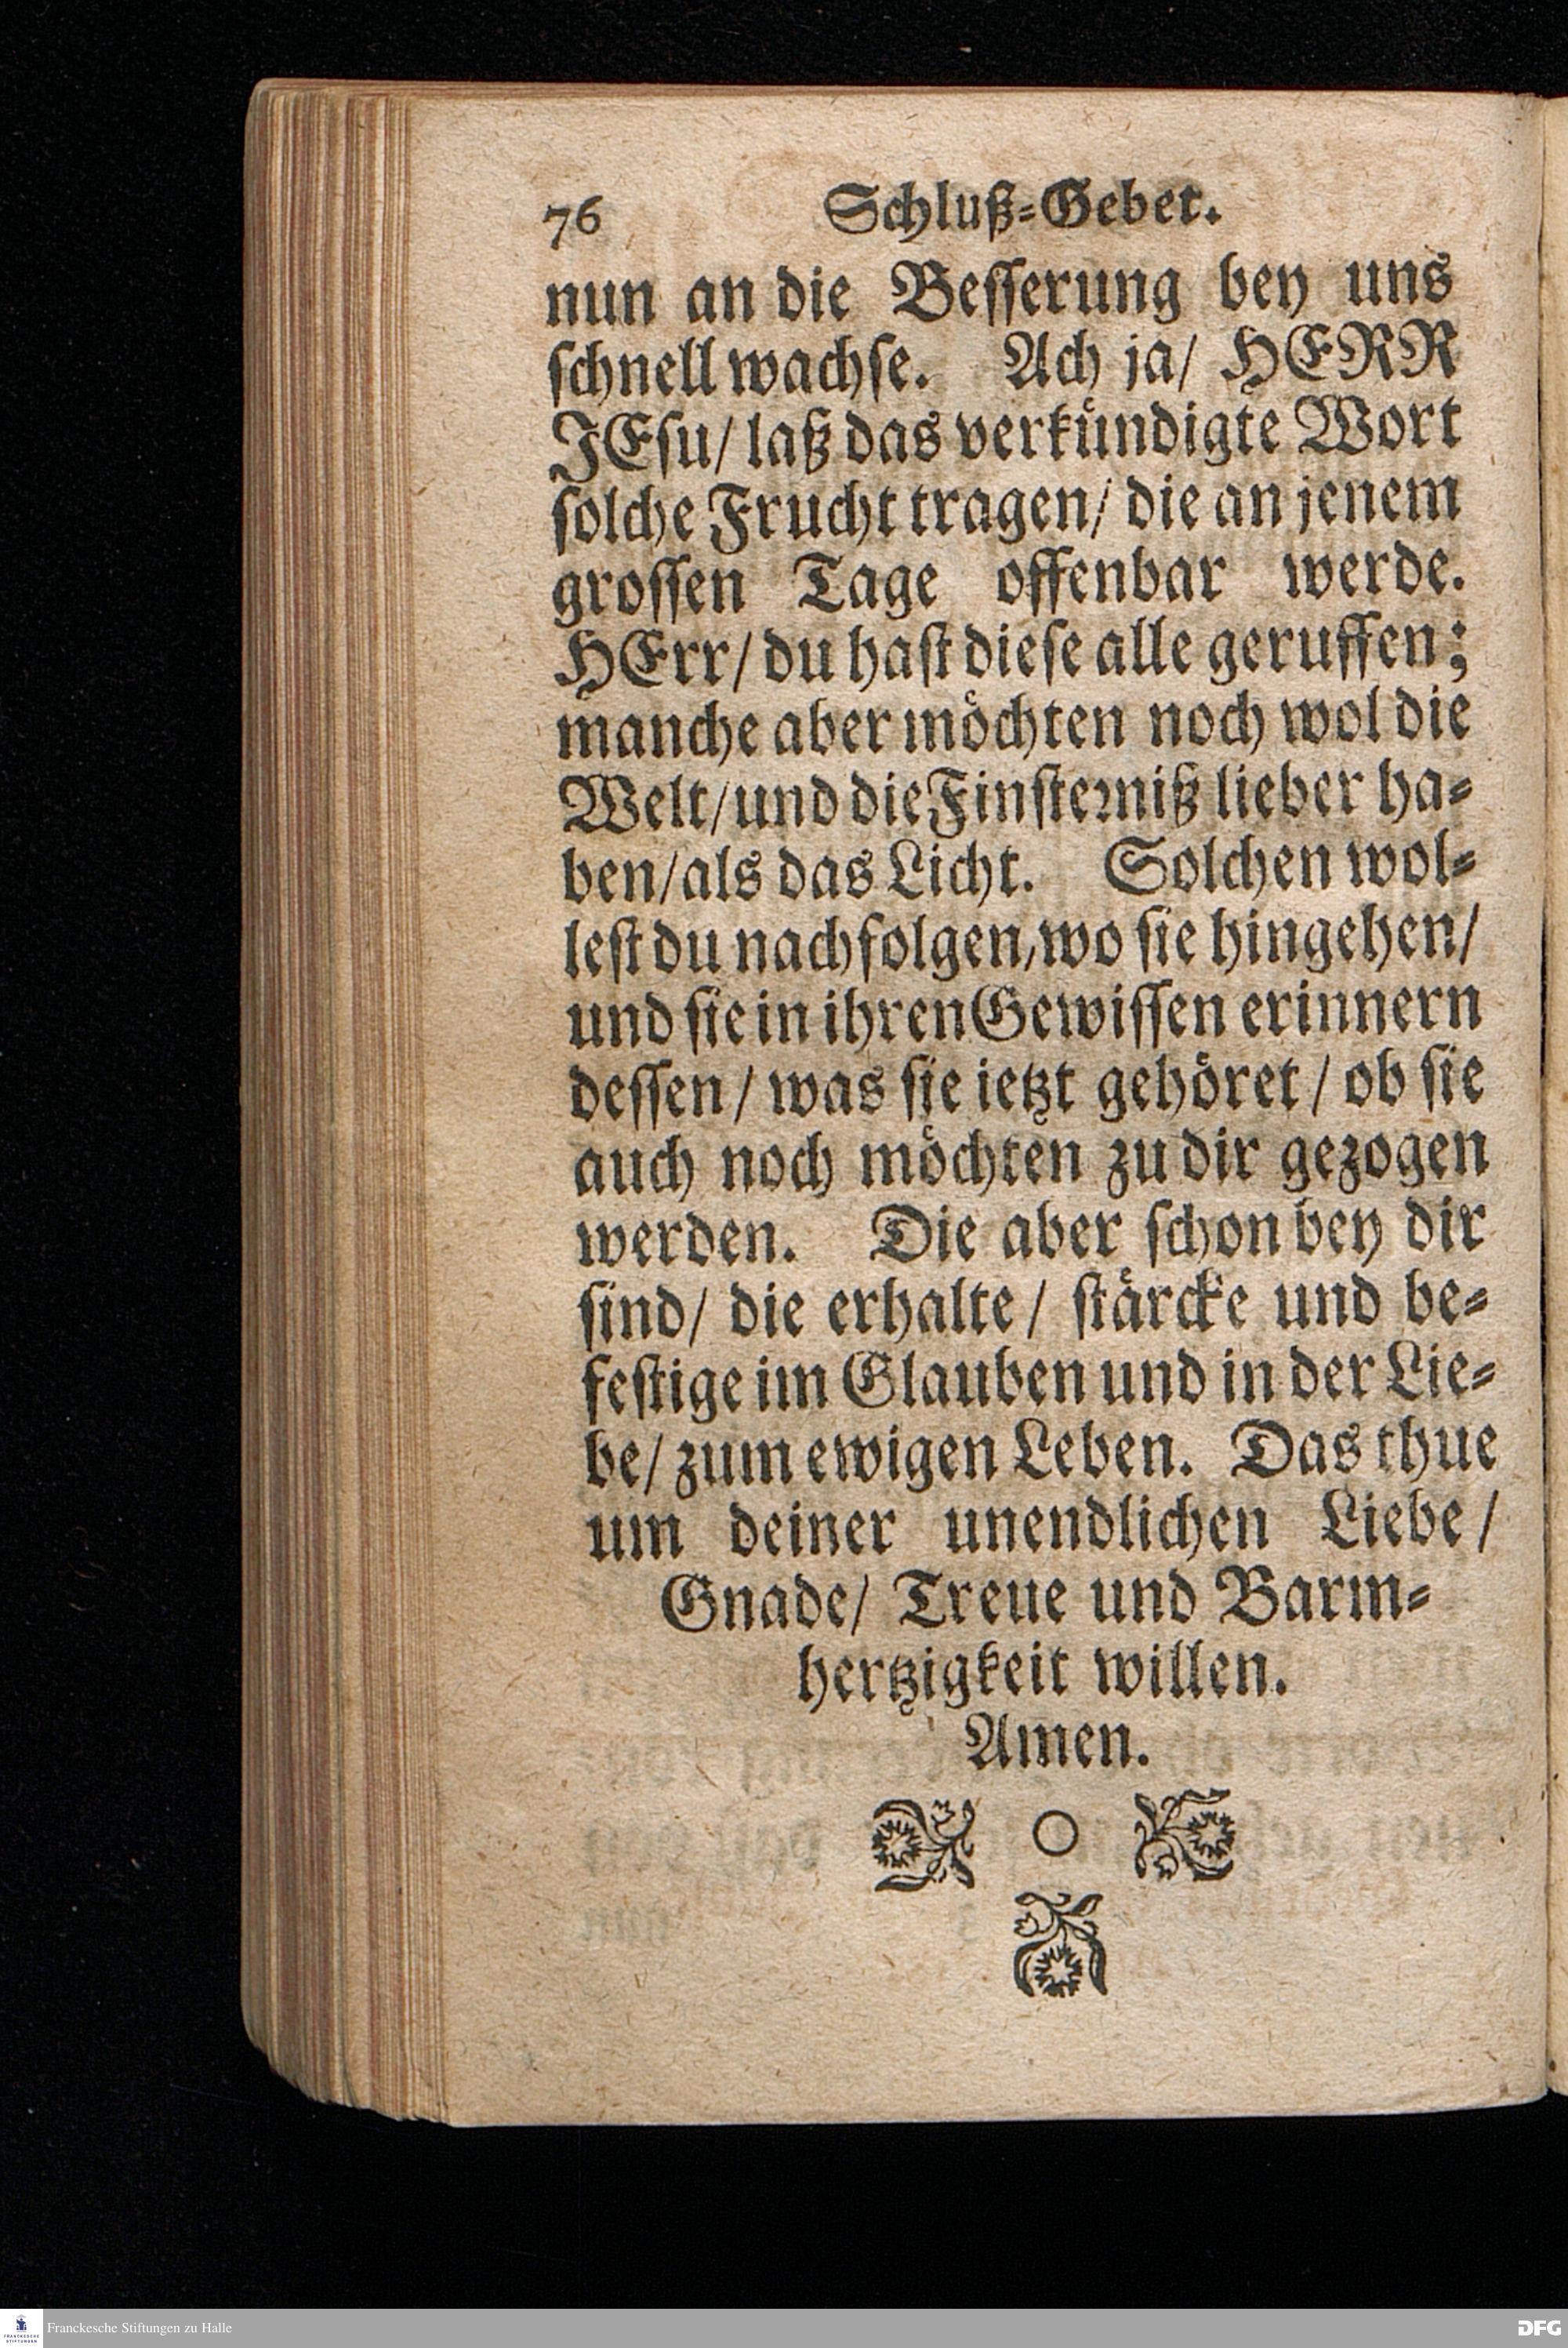 76 Schluß-Gebet.
nun an die Besserung bey uns
schnell wachse. Ach ja/ HERR
JEsu/ laß das verkündigte Wort
solche Frucht tragen/ die an jenem
grossen Tage offenbar werde.
HErr/ du hast diese alle geruffen;
manche aber möchten noch wol die
Welt/ und die Finsterniß lieber ha-
ben/ als das Licht. Solchen wol-
lest du nachfolgen, wo sie hingehen/
und sie in ihren Gewissen erinnern
dessen/ was sie ietzt gehöret/ ob sie
auch noch möchten zu dir gezogen
werden. Die aber schon bey dir
sind/ die erhalte/ stärcke und be-
festige im Glauben und in der Lie-
be/ zum ewigen Leben. Das thue
um deiner unendlichen Liebe/
Gnade/ Treue und Barm-
hertzigkeit willen.
Amen.
FRANCKESCHE STIFTUNGEN
Franckesche Stiftungen zu Halle
DFG